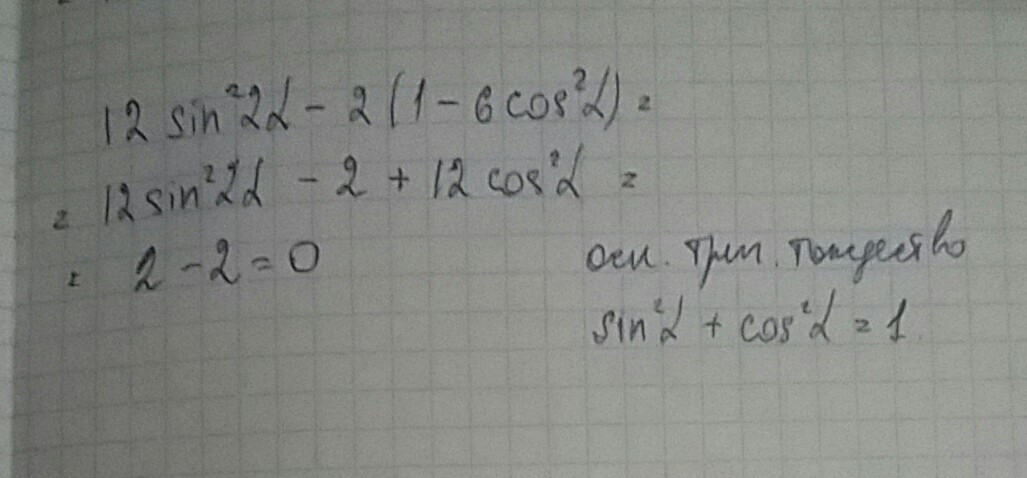 12 sin²2α - 2 (1 - 6 cos²α) =
= 12 sin²2α - 2 + 12 cos²α =
= 2 - 2 = 0
осн. триг. тождество
sin²α + cos²α = 1